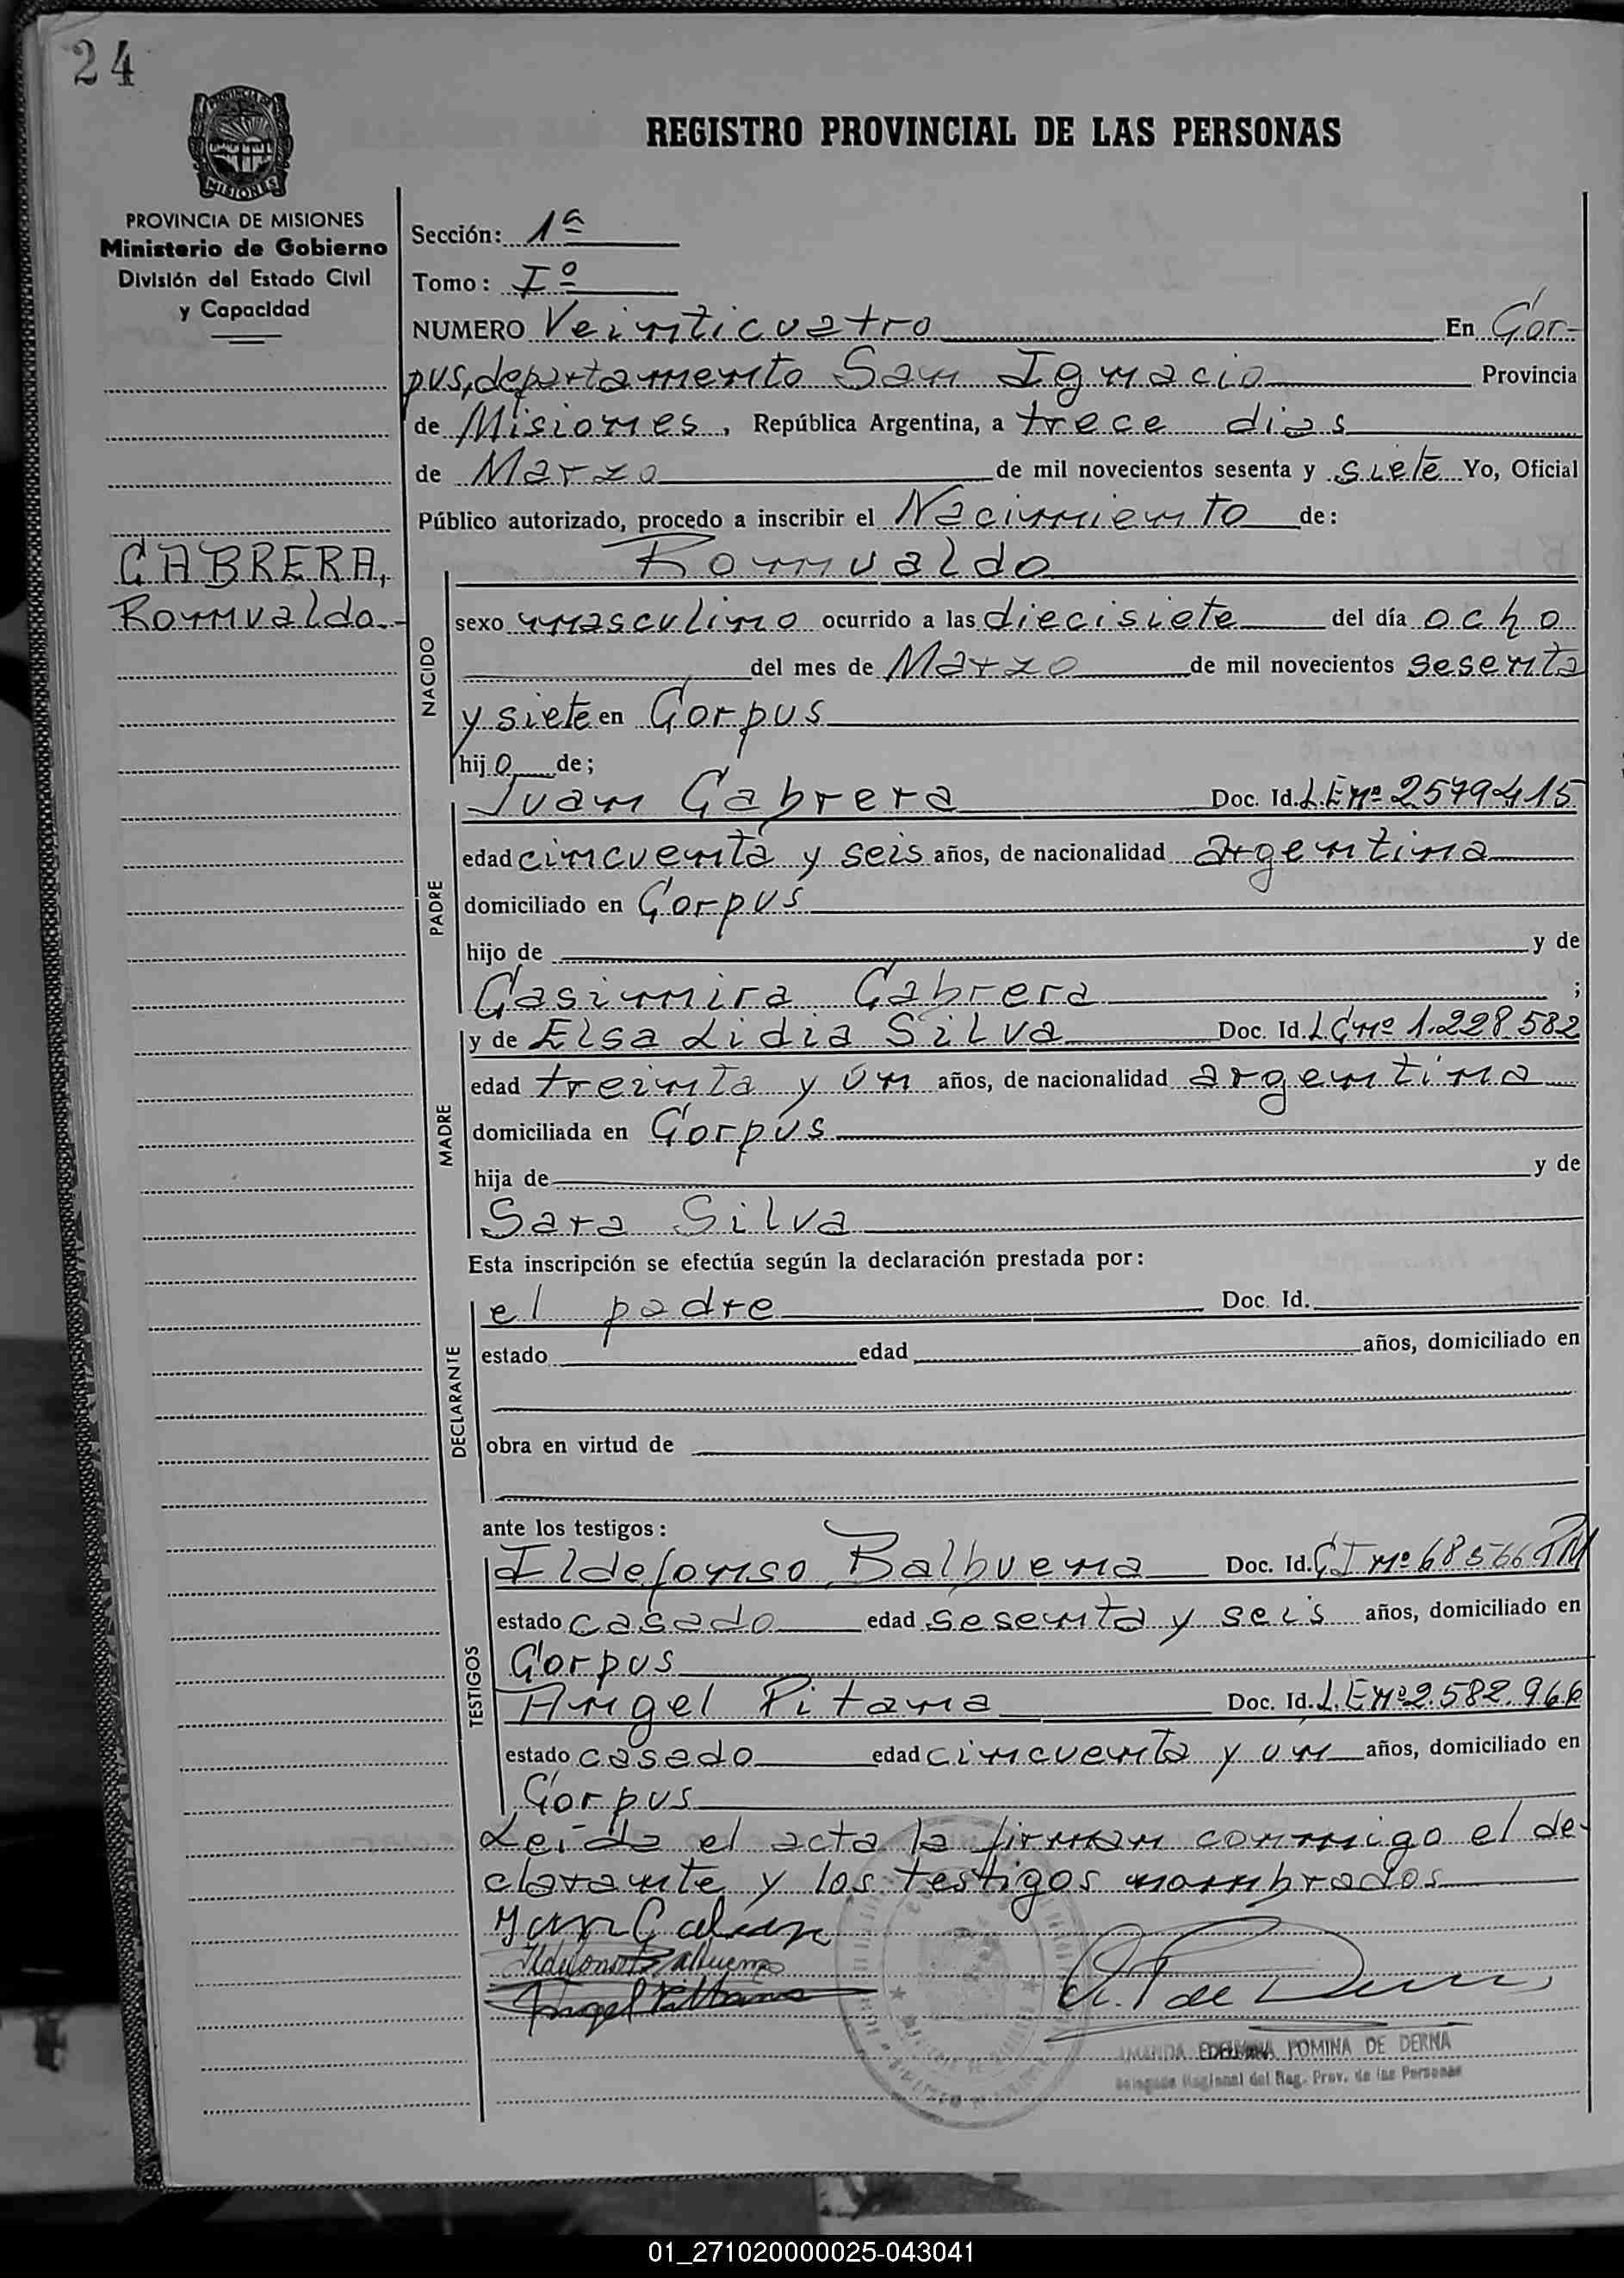 24
PROVINCIA DE MISIONES
Ministerio de Gobierno
División del Estado Civil
y Capacidad
REGISTRO PROVINCIAL DE LAS PERSONAS
Sección: 1ª
Tomo: Iº
NUMERO Veinticuatro En Cor-
pus, departamento San Ignacio Provincia
de Misiones, República Argentina, a trece dias
de Marzo de mil novecientos sesenta y siete Yo, Oficial
Público autorizado, procedo a inscribir el Nacimiento de:
CABRERA,
Romualdo.-
Romualdo
NACIDO
sexo masculino ocurrido a las diecisiete del día ocho
del mes de Marzo de mil novecientos sesenta
y siete en Corpus
hijo de;
PADRE
Juan Cabrera Doc. Id. L.E nº 2579415
edad cincuenta y seis años, de nacionalidad argentina
domiciliado en Corpus
hijo de y de
Casimira Cabrera ;
MADRE
y de Elsa Lidia Silva Doc. Id. L.C nº 1.228.582
edad treinta y un años, de nacionalidad argentina
domiciliada en Corpus
hija de y de
Sara Silva
Esta inscripción se efectúa según la declaración prestada por:
DECLARANTE
el padre Doc. Id.
estado edad años, domiciliado en
obra en virtud de
ante los testigos:
TESTIGOS
Ildefonso Balbuena Doc. Id. C I nº 68566
estado casado edad sesenta y seis años, domiciliado en
Corpus
Angel Pitana Doc. Id. L.E nº 2.582.966
estado casado edad cincuenta y un años, domiciliado en
Corpus
Leida el acta la firman conmigo el de-
clarante y los testigos nombrados
Juan Cabrera
Ildefonso Balbuena
Angel Pittana
AMANDA EDELMINA POMINA DE DERNA
Delegada Regional del Reg. Prov. de las Personas
01_271020000025-043041